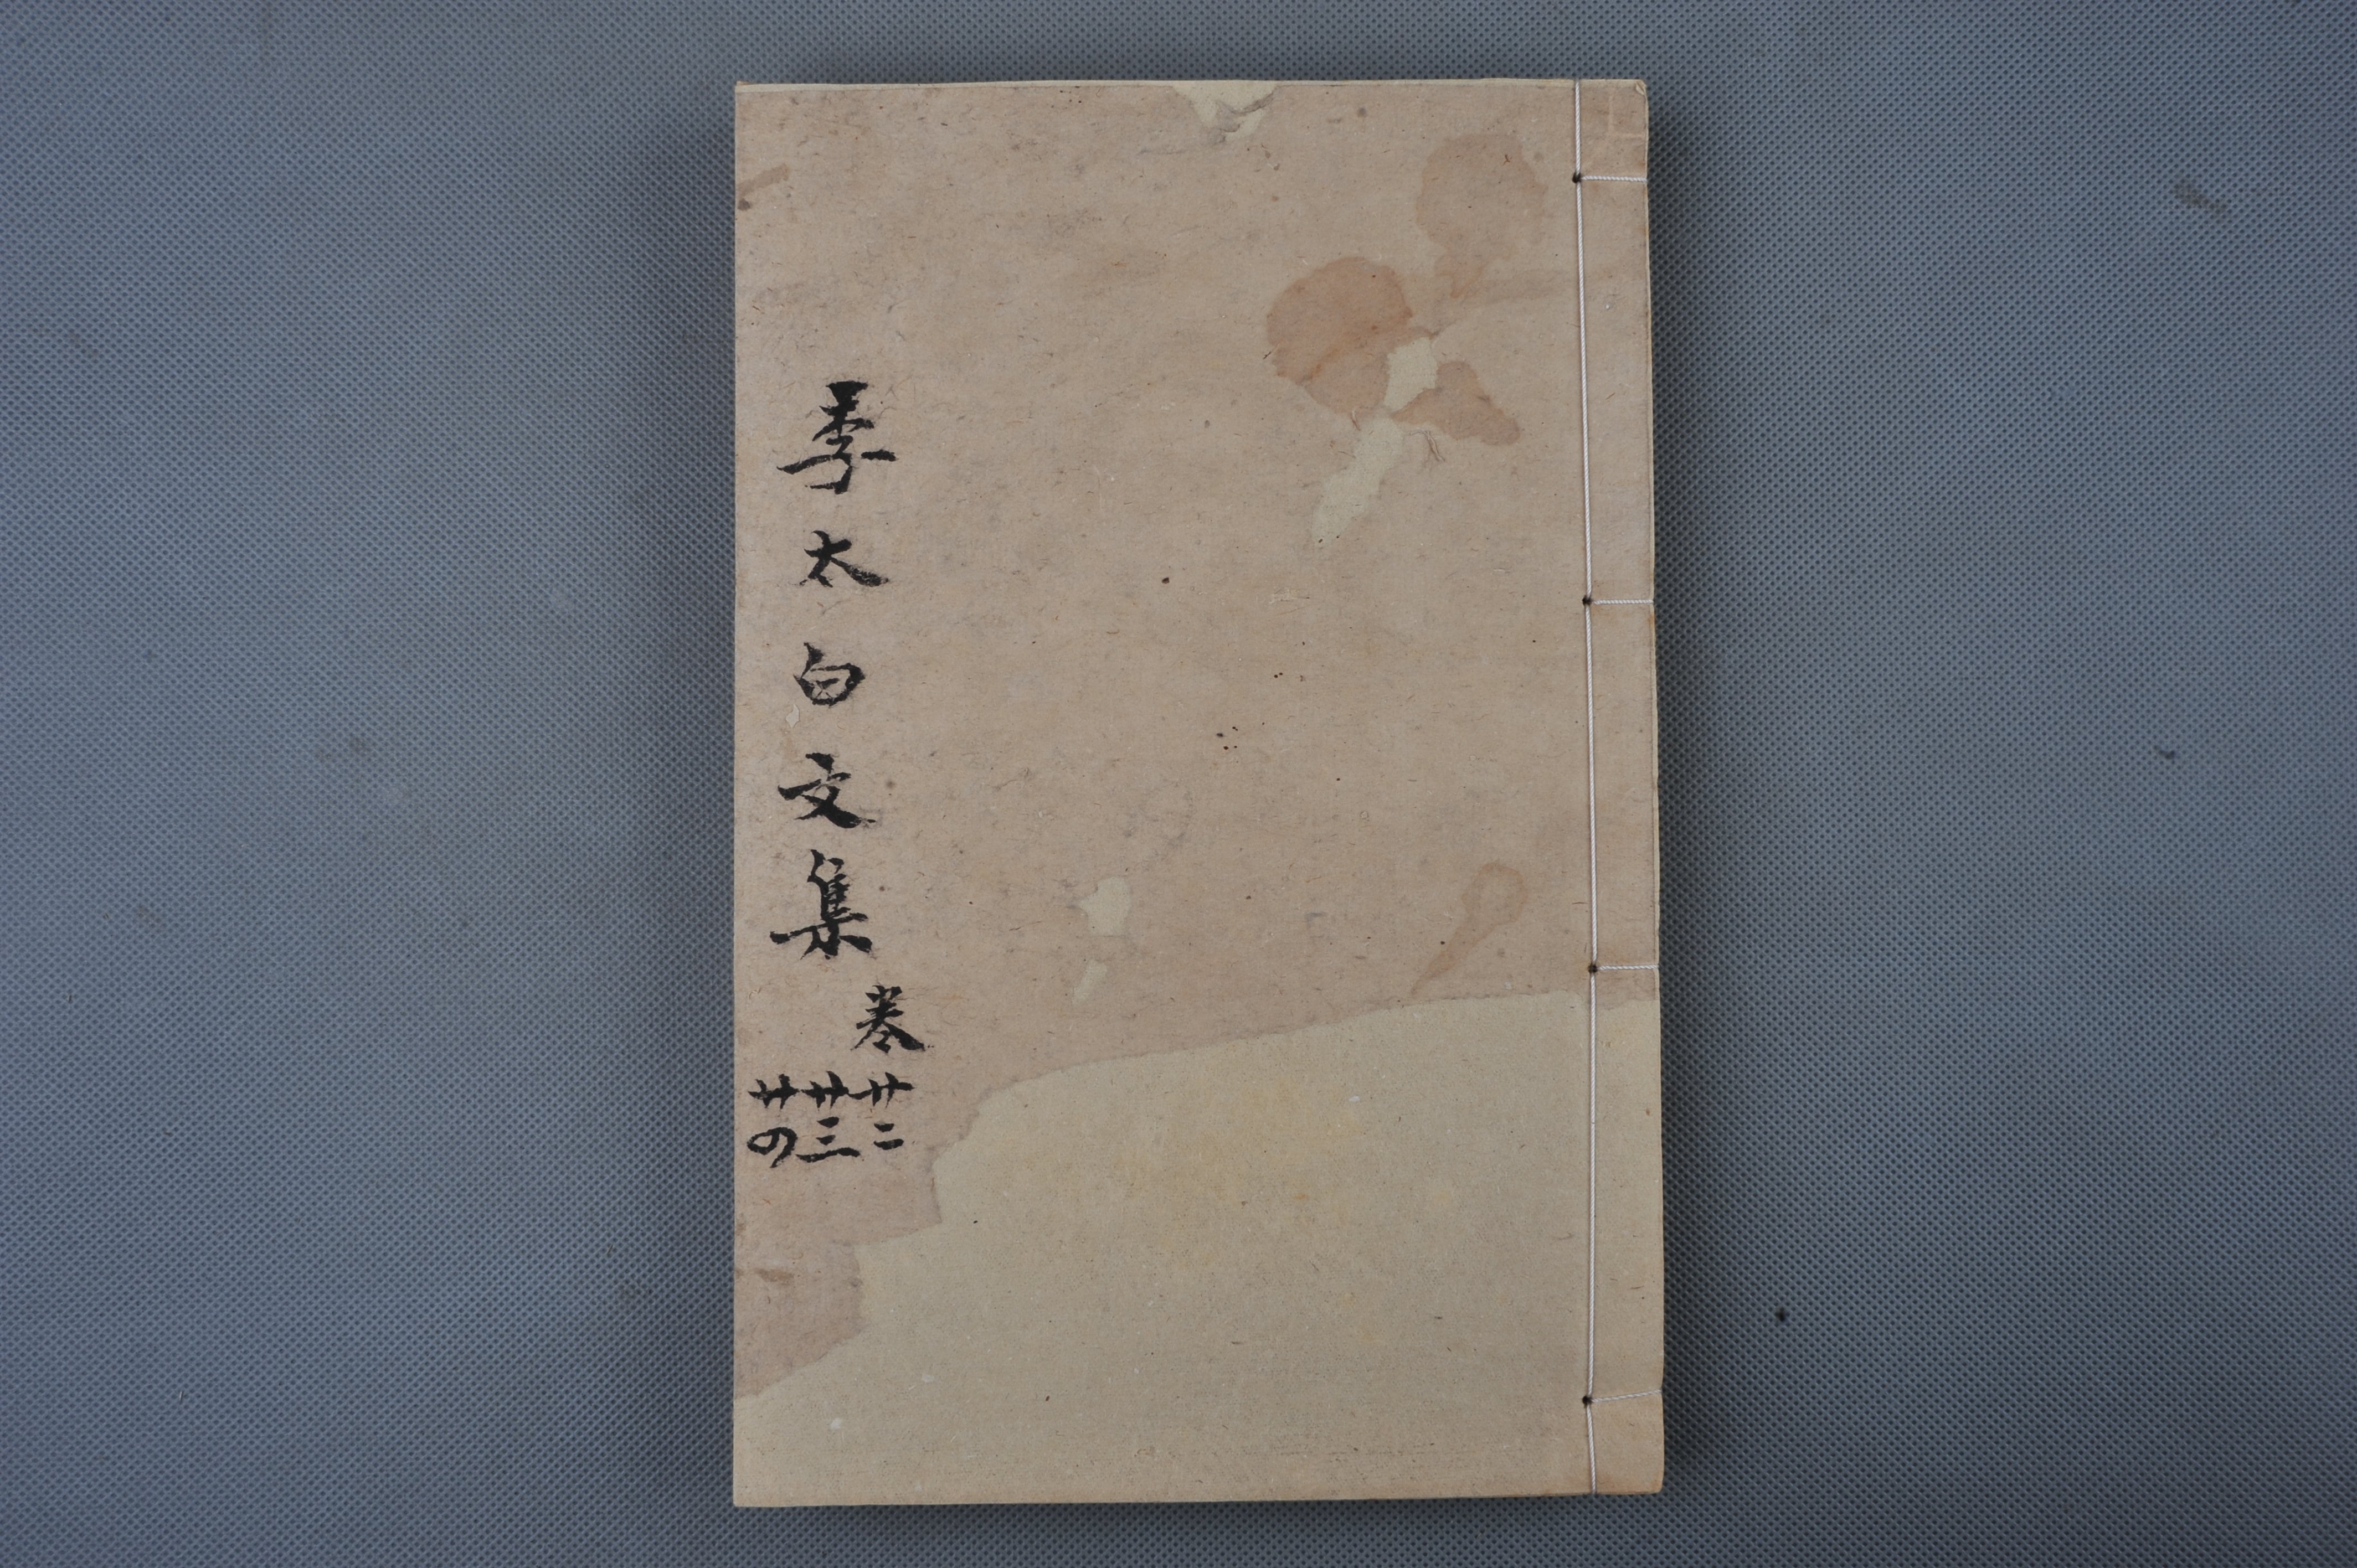 李太白文集
卷
廿二
廿三
廿四